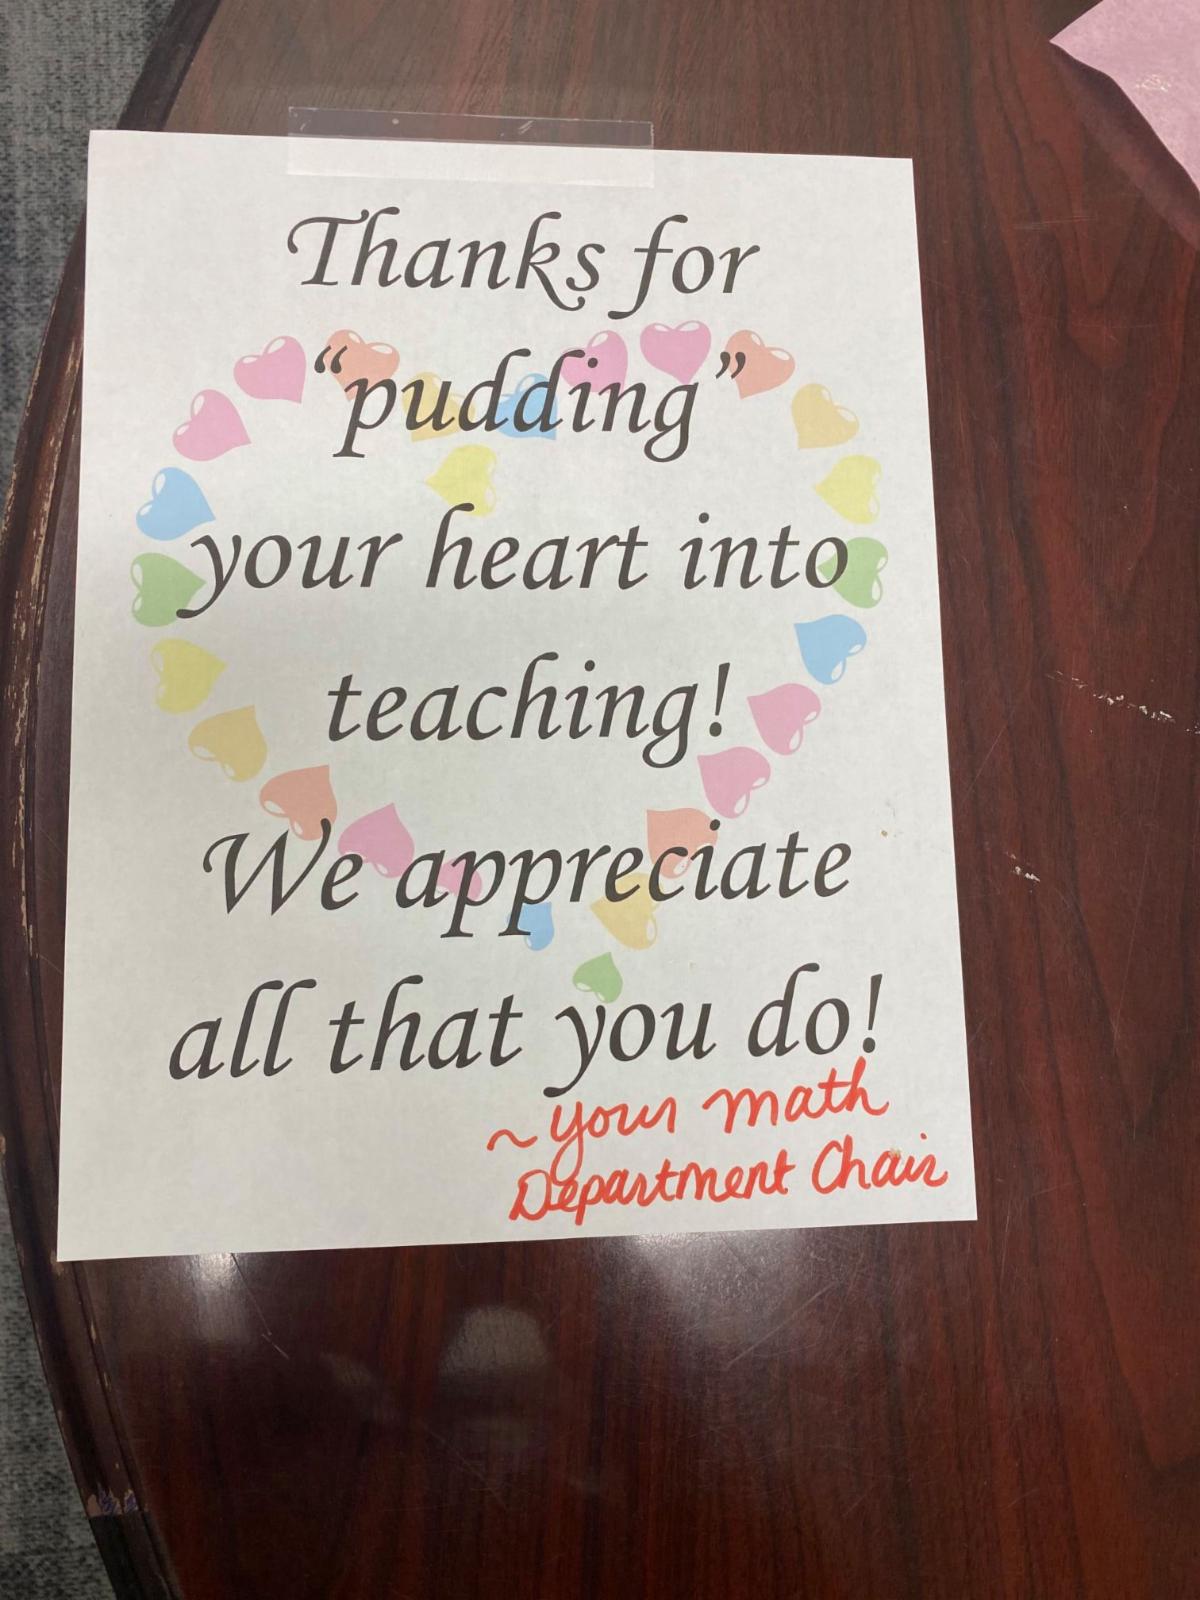 Thanks for
“pudding”
your heart into
teaching!
We appreciate
all that you do!
~ your math
Department Chair